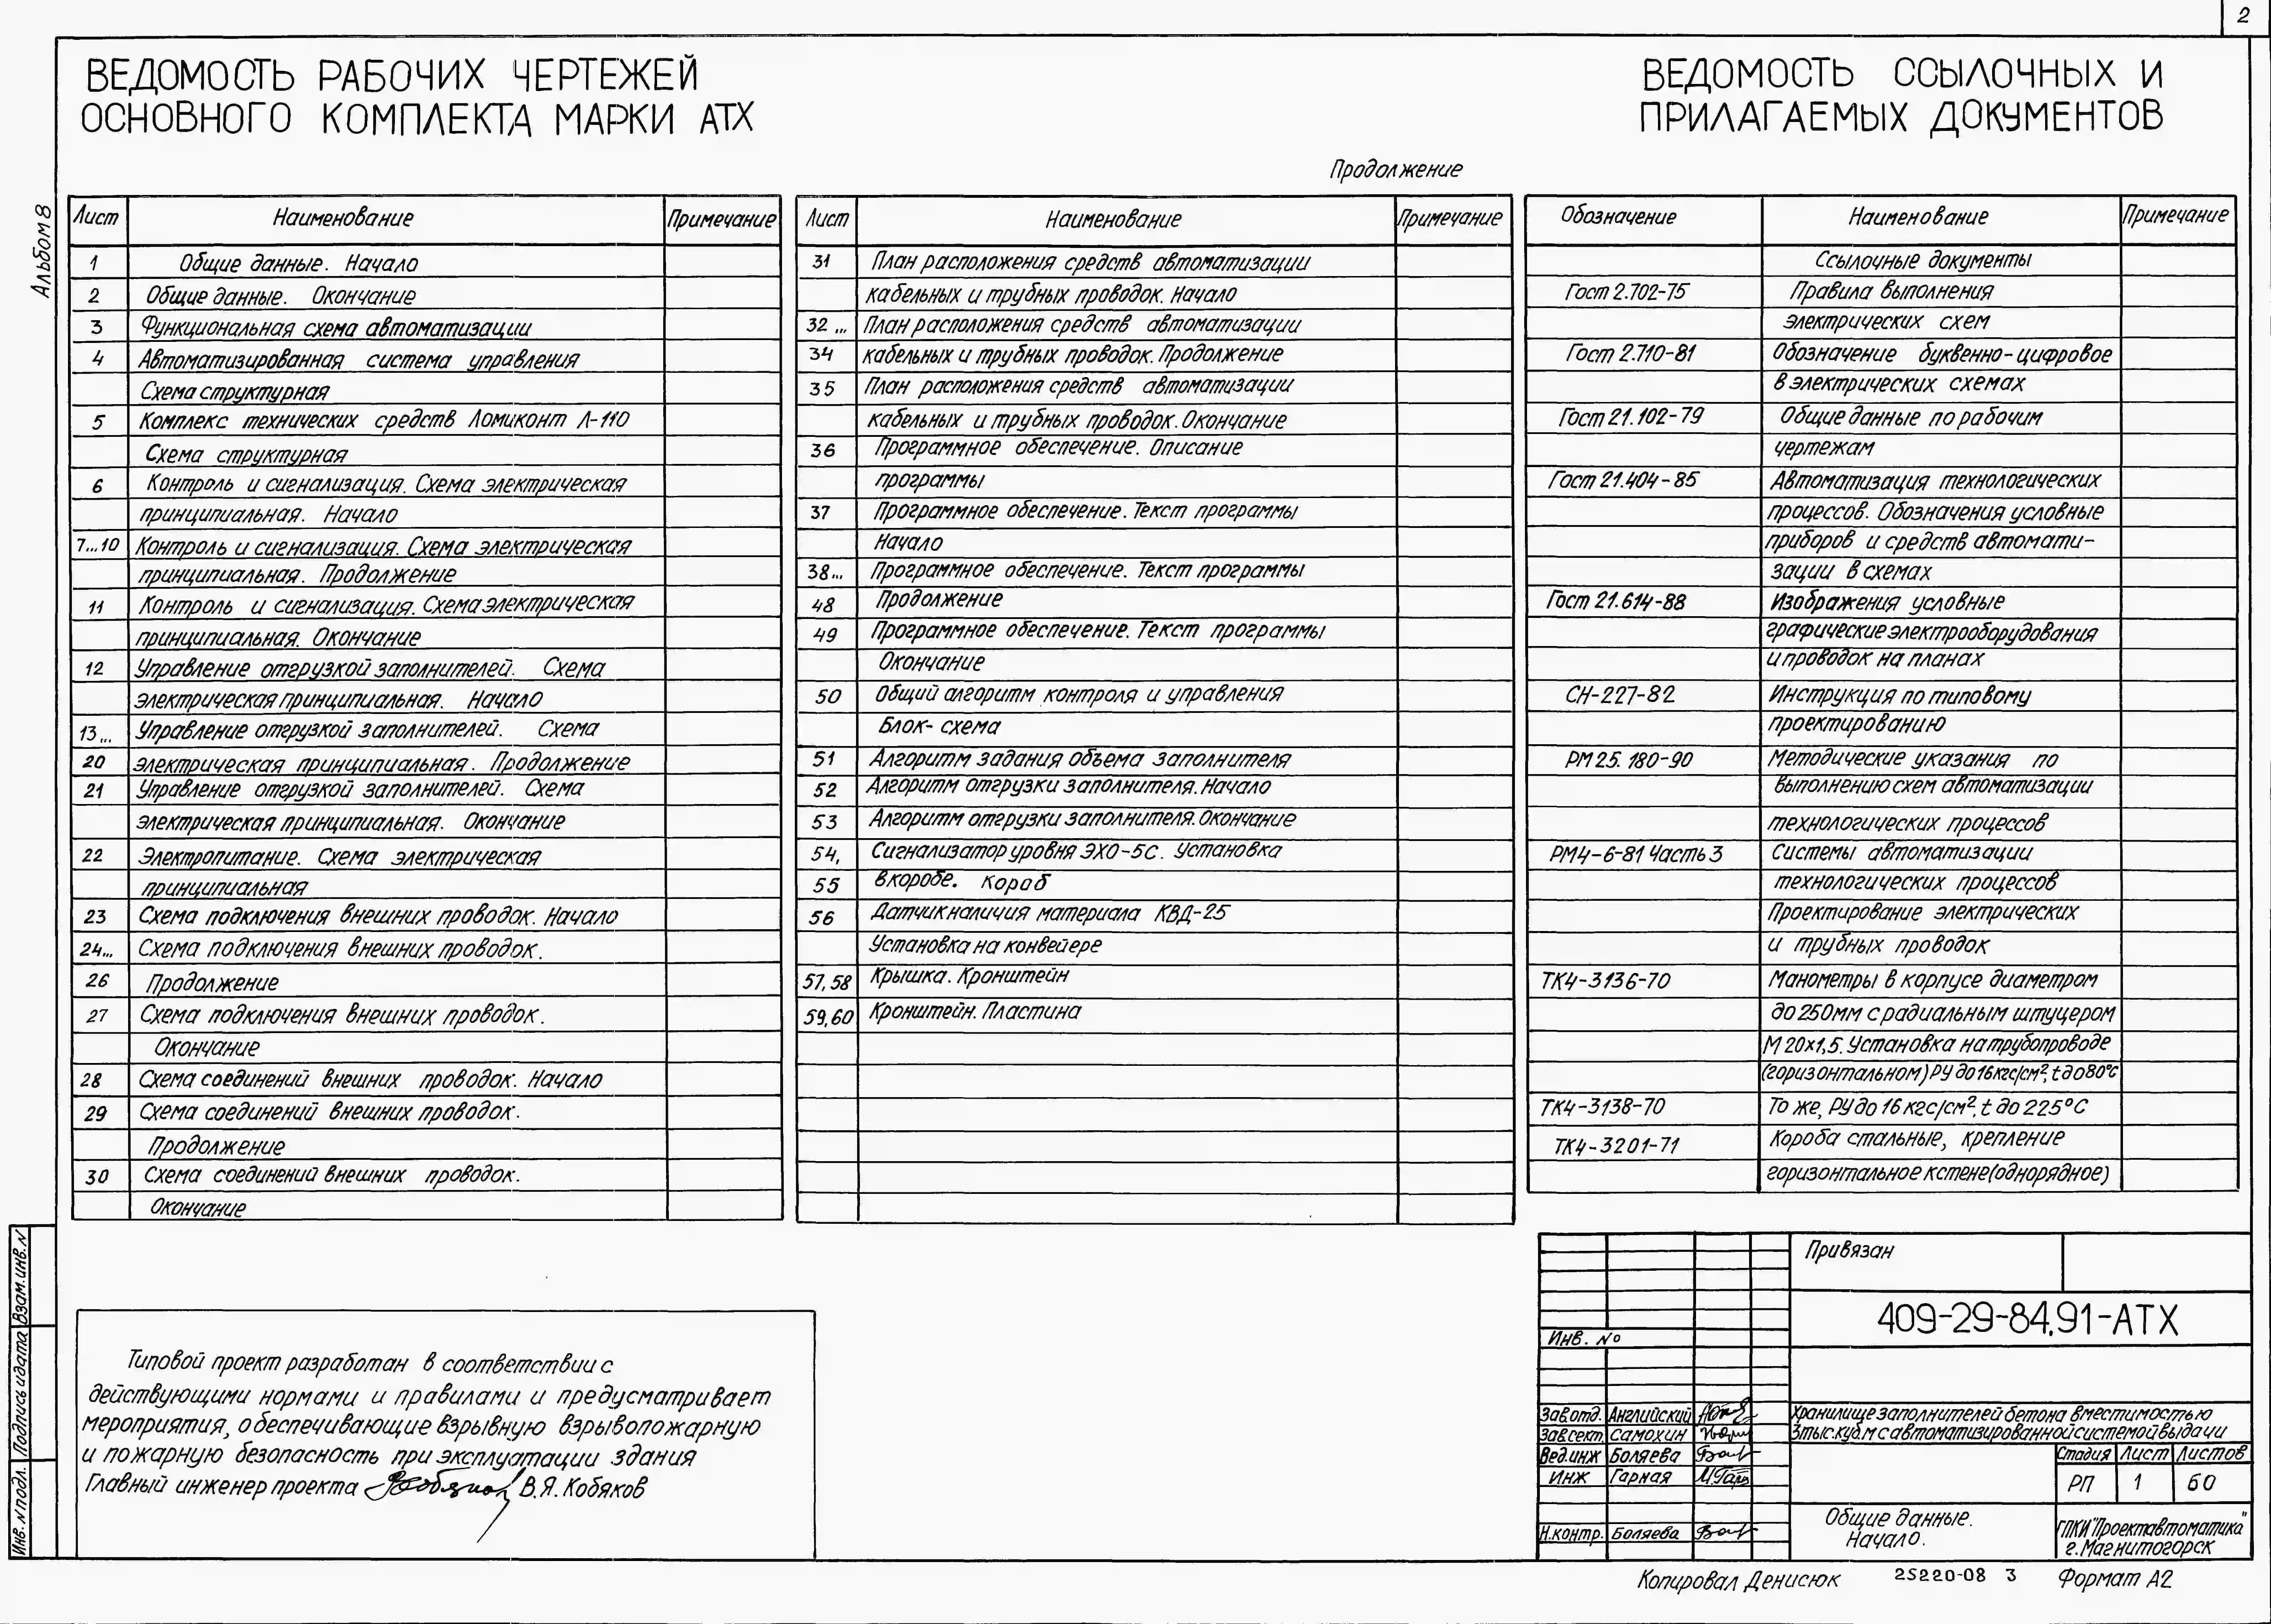 2
Альбом 8
ВЕДОМОСТЬ РАБОЧИХ ЧЕРТЕЖЕЙ
ОСНОВНОГО КОМПЛЕКТА МАРКИ АТХ
Лист Наименование Примечание
1 Общие данные. Начало
2 Общие данные. Окончание
3 Функциональная схема автоматизации
4 Автоматизированная система управления
Схема структурная
5 Комплекс технических средств Ломиконт Л-110
Схема структурная
6 Контроль и сигнализация. Схема электрическая
принципиальная. Начало
7...10 Контроль и сигнализация. Схема электрическая
принципиальная. Продолжение
11 Контроль и сигнализация. Схема электрическая
принципиальная. Окончание
12 Управление отгрузкой заполнителей. Схема
электрическая принципиальная. Начало
13... Управление отгрузкой заполнителей. Схема
20 электрическая принципиальная. Продолжение
21 Управление отгрузкой заполнителей. Схема
электрическая принципиальная. Окончание
22 Электропитание. Схема электрическая
принципиальная
23 Схема подключения внешних проводок. Начало
24... Схема подключения внешних проводок.
26 Продолжение
27 Схема подключения внешних проводок.
Окончание
28 Схема соединений внешних проводок. Начало
29 Схема соединений внешних проводок.
Продолжение
30 Схема соединений внешних проводок.
Окончание
Продолжение
Лист Наименование Примечание
31 План расположения средств автоматизации
кабельных и трубных проводок. Начало
32... План расположения средств автоматизации
34 кабельных и трубных проводок. Продолжение
35 План расположения средств автоматизации
кабельных и трубных проводок. Окончание
36 Программное обеспечение. Описание
программы
37 Программное обеспечение. Текст программы
Начало
38... Программное обеспечение. Текст программы
48 Продолжение
49 Программное обеспечение. Текст программы
Окончание
50 Общий алгоритм контроля и управления
Блок-схема
51 Алгоритм задания объема заполнителя
52 Алгоритм отгрузки заполнителя. Начало
53 Алгоритм отгрузки заполнителя. Окончание
54, Сигнализатор уровня ЭХО-5С. Установка
55 в коробе. Короб
56 Датчик наличия материала КВД-25
Установка на конвейере
57,58 Крышка. Кронштейн
59,60 Кронштейн. Пластина
ВЕДОМОСТЬ ССЫЛОЧНЫХ И
ПРИЛАГАЕМЫХ ДОКУМЕНТОВ
Обозначение Наименование Примечание
Ссылочные документы
Гост 2.702-75 Правила выполнения
электрических схем
Гост 2.710-81 Обозначение буквенно-цифровое
в электрических схемах
Гост 21.102-79 Общие данные по рабочим
чертежам
Гост 21.404-85 Автоматизация технологических
процессов. Обозначения условные
приборов и средств автомати-
зации в схемах
Гост 21.614-88 Изображения условные
графические электрооборудования
и проводок на планах
СН-227-82 Инструкция по типовому
проектированию
РМ 25. 180-90 Методические указания по
выполнению схем автоматизации
технологических процессов
РМ4-6-81 Часть 3 Системы автоматизации
технологических процессов
Проектирование электрических
и трубных проводок
ТК4-3136-70 Манометры в корпусе диаметром
до 250мм с радиальным штуцером
М 20х1,5. Установка на трубопроводе
(горизонтальном) РУ до 16 кгс/см², t до 80°С
ТК4-3138-70 То же, РУ до 16 кгс/см², t до 225°С
ТК4-3201-71 Короба стальные, крепление
горизонтальное к стене (однорядное)
Типовой проект разработан в соответствии с
действующими нормами и правилами и предусматривает
мероприятия, обеспечивающие взрывную взрывопожарную
и пожарную безопасность при эксплуатации здания
Главный инженер проекта В.Я. Кобяков
Взам. инв. N
Подпись и дата
Инв. N подл.
Привязан
Инв. №
409-29-84.91-АТХ
Зав.отд. Английский
Зав.сект. Самохин
Вед.инж Боляева
Инж Гарная
Н.контр. Боляева
Хранилище заполнителей бетона вместимостью
3 тыс.куб.м с автоматизированной системой выдачи
Стадия Лист Листов
РП 1 60
Общие данные.
Начало.
ГПКИ "Проектавтоматика"
г. Магнитогорск
Копировал Денисюк 25220-08 3 Формат А2